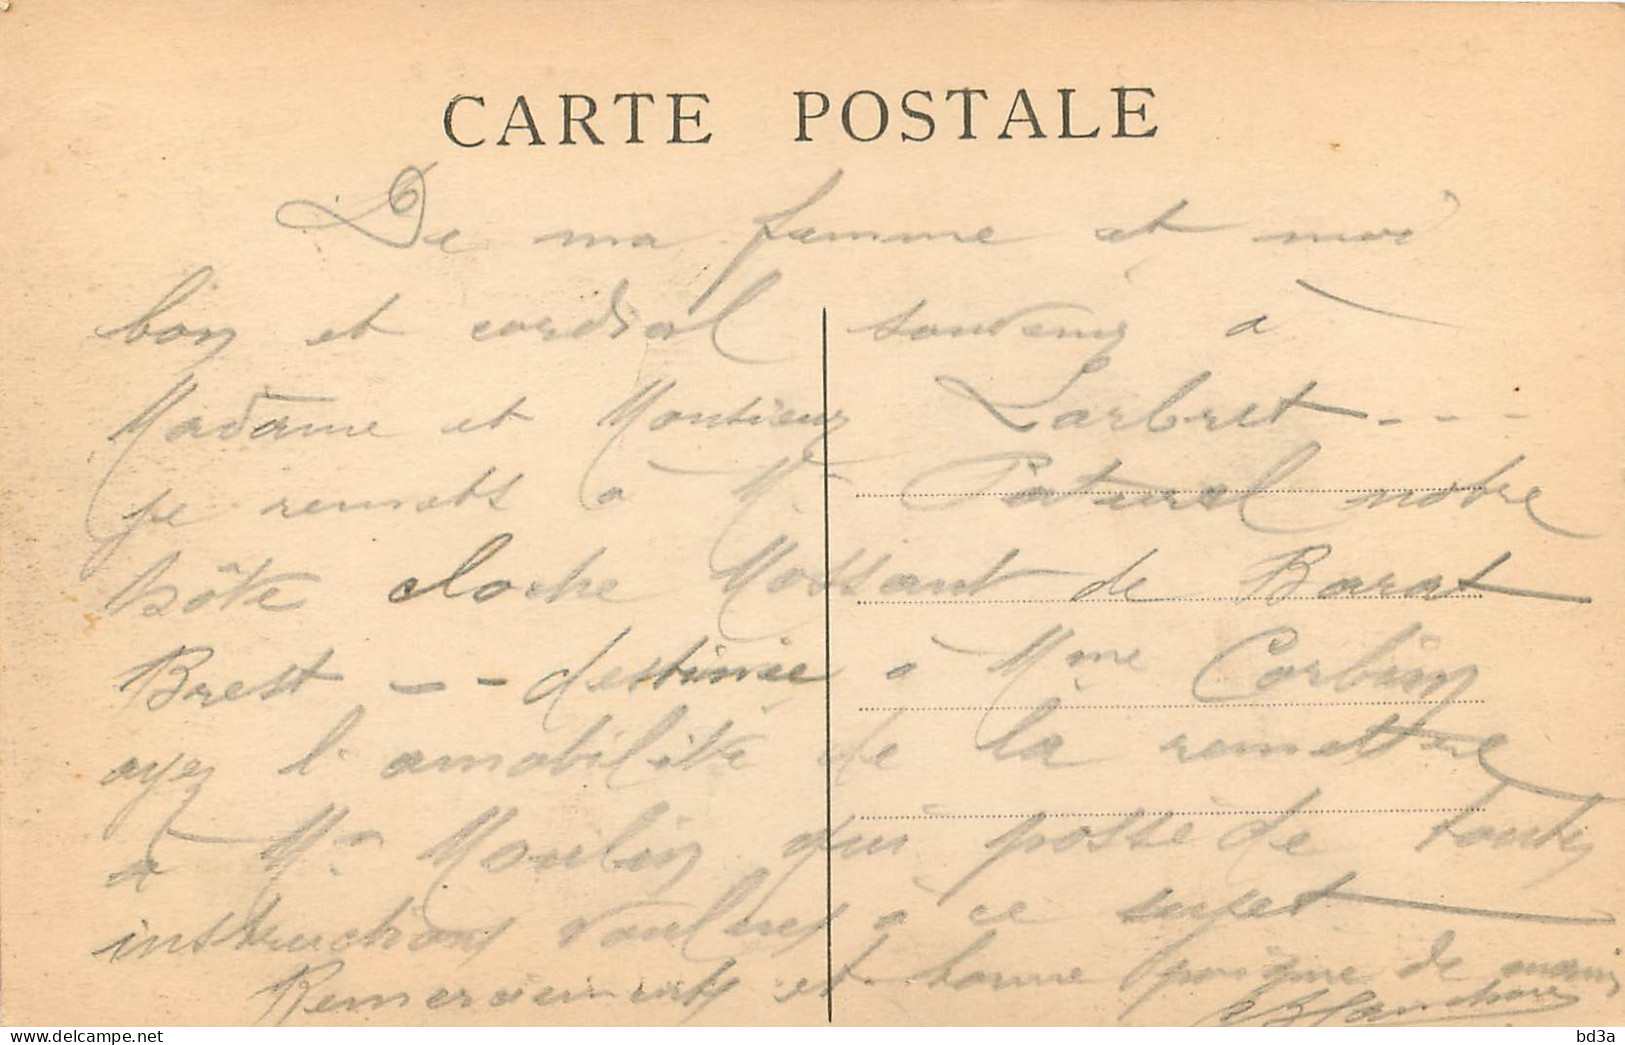 CARTE POSTALE
De ma famme et moi
bon et cordial souvenir à
Madame et Monsieur Larbret - - -
je remets à Mr Paturel notre
hôte cloche Mossant de Barat
Brest - - destinée à Mme Corbin
ayez l'amabilité de la remettre
à Mr Moulin qui possède toutes
instructions voulues à ce sujet
Remerciements et bonne poigne de main
Blanchard
bd3a